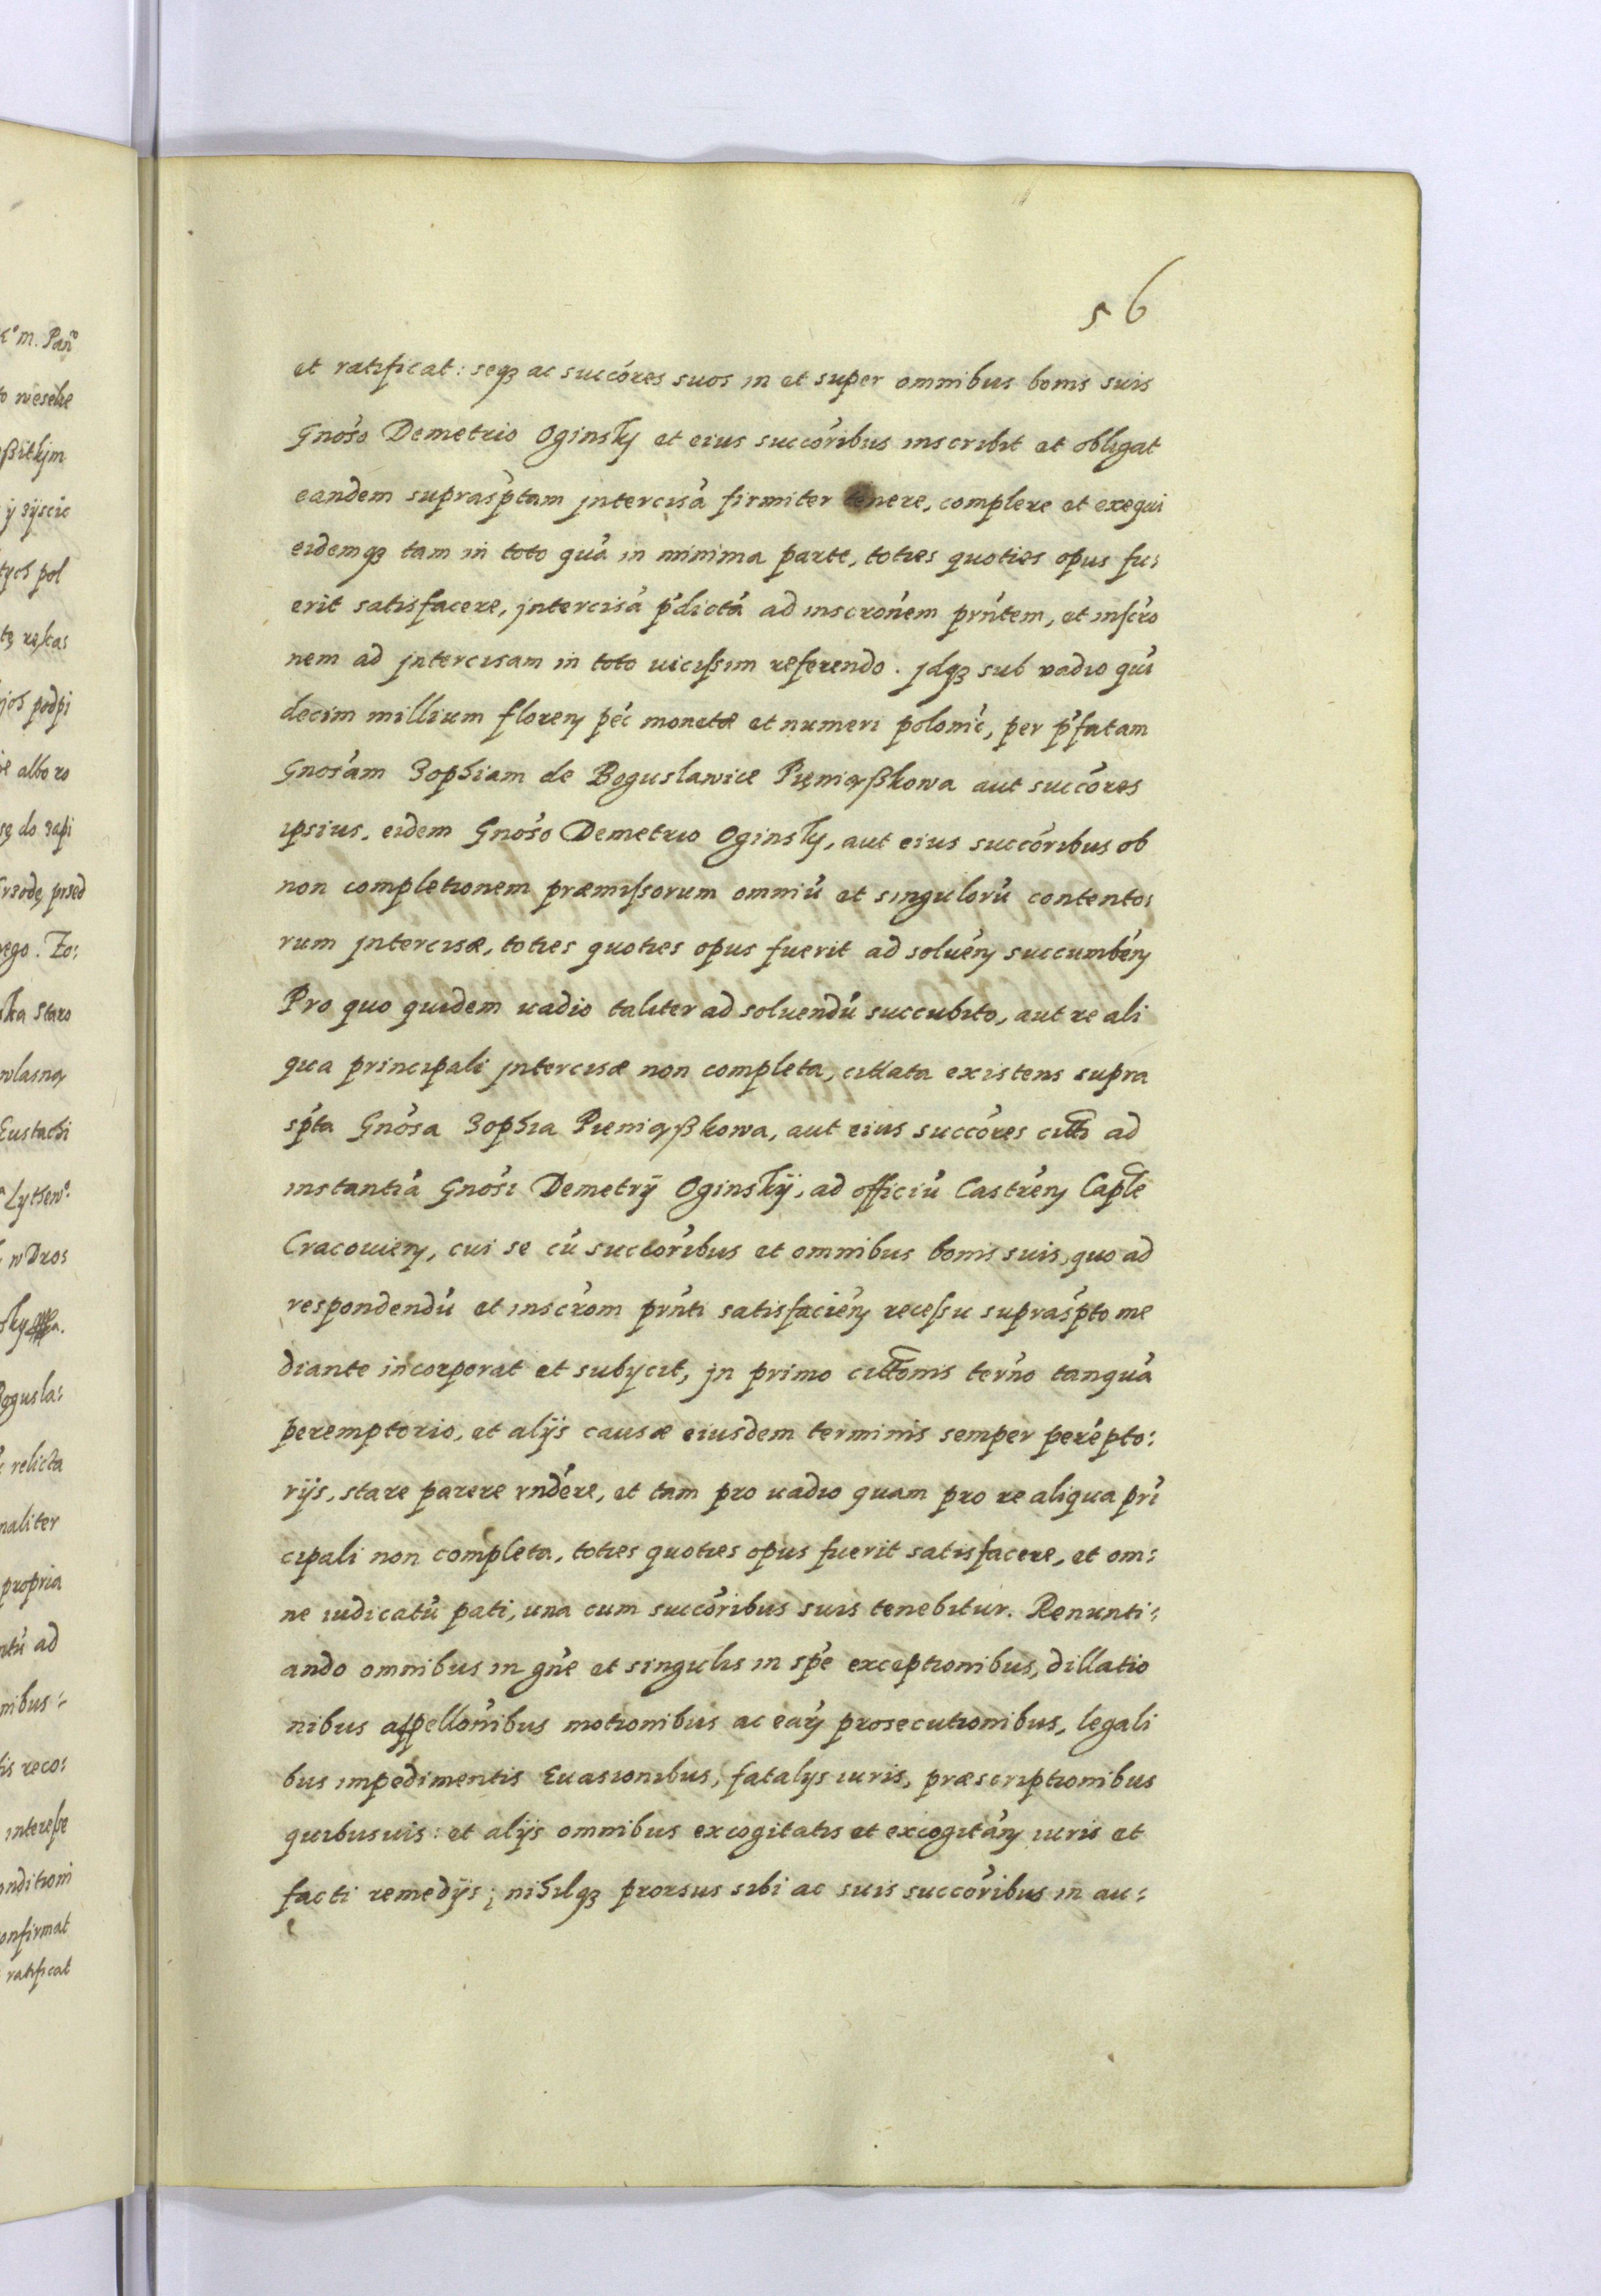 56
et ratificat: seqꝫ ac succóres suos in et super omnibus bonis suis
Gnośo Demetrio Oginsky et eius succóribus inscribit et obligat
eandem supraśptam jntercisá firmiter tenere, complere et exequi
eidemqꝫ tam in toto quá in minima parte, toties quoties opus fu:
erit satisfacere, jntercisá p̓dictá ad inscronem prńtem, et inscŕo
nem ad jntercisam in toto vicißim referendo. jdqꝫ sub vadio quí
decim millium floreń péc monetæ et numeri polonić, per p̓fatam
Gnosám Zophiam de Boguslawice Pięniążkowa aut succóres
ipsius, eidem Gnośo Demetrio Oginsky, aut eius succóribus ob
non completionem præmißorum omniú et singulorú contento:
rum jntercisæ, toties quoties opus fuerit ad soluéń succumbéń
Pro quo quidem uadio taliter ad soluendú succubito, aut re ali
qua principali jntercisæ non completa, cittata existens supra
śpta Gnósa Zophia Pieniążkowa, aut eius succóres citti ad
instantiá Gnośi Demetrij Oginskij, ad officiú Castréń Caple
Cracouień, cui se cú succóribus et omnibus bonis suis, quo ad
respondendú et inscŕom prńti satisfaciéń receßu supraśpto me
diante incorporat et subycit, jn primo cittonis terńo tanquá
peremptorio, et alijs causæ eiusdem terminis semper perépto:
rijs, stare parere rńdére, et tam pro uadio quam pro re aliqua prí
cipali non completa, toties quoties opus fuerit satisfacere, et om:
ne iudicatú pati, una cum succóribus suis tenebitur. Renunti:
ando omnibus in gńe et singulis in spé exceptionibus, dillatio
nibus appellońibus motionibus ac eaŕ prosecutionibus, legali
bus impedimentis Euasionibus, fatalys iuris, præscriptionibus
quibusuis: et alijs omnibus excogitatis et excogitáń iuris et
facti remedijs; nihilqꝫ prorsus sibi ac suis succóribus in au: